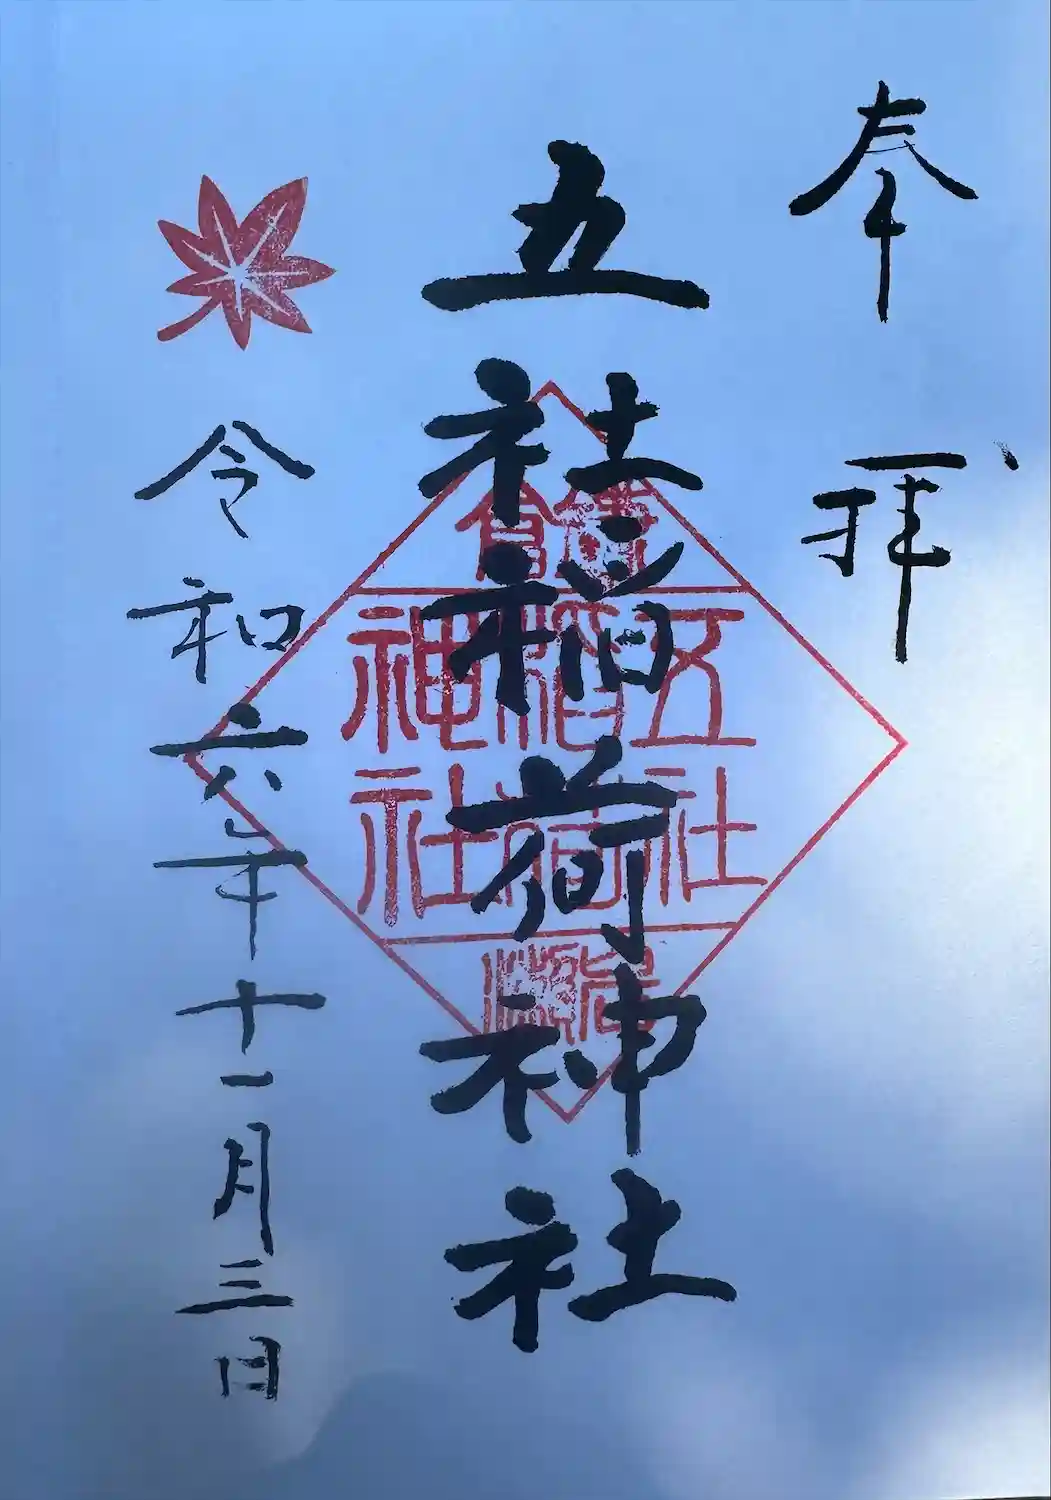 奉拝
五社稲荷神社
五社
稲荷
神社
令和六年十一月三日